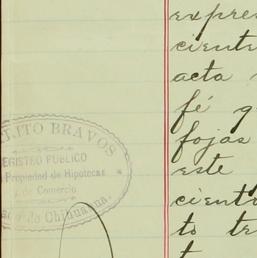 LITO BRAVOS
REGISTRO PUBLICO
Propiedad de Hipotecas
de Comercio
de Chihuahua
expre
cient
acta
fé q
fojas
este
cient
to te